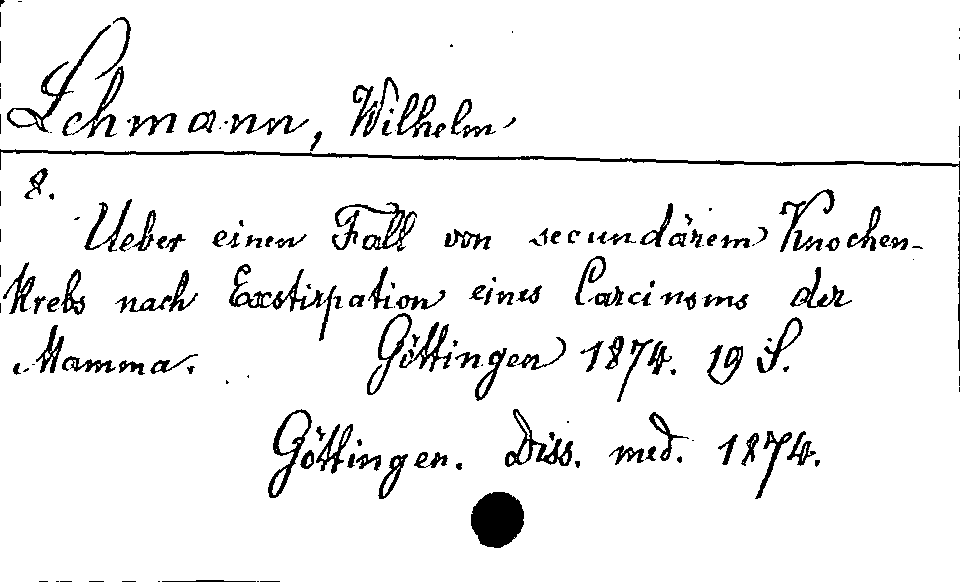 Lehmann, Wilhelm
8.
Ueber einen Fall von secundärem Knochen-
krebs nach Exstirpation eines Carcinoms der
Mamma. Göttingen 1874. 19 S.
Göttingen. Diss. med. 1874.